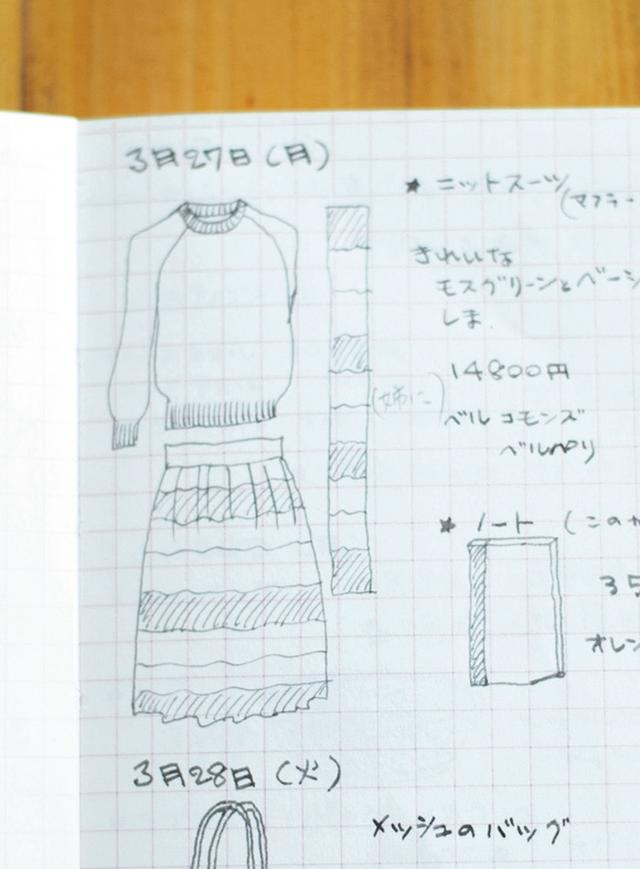 3月27日(月)
★ ニットスーツ
(マフラー
きれいな
モスグリーンとベージ
しま.
14800円
(姉に)
ベル コモンズ
★ ノート (この
35
オレン
3月28日(火)
メッシュのバッグ